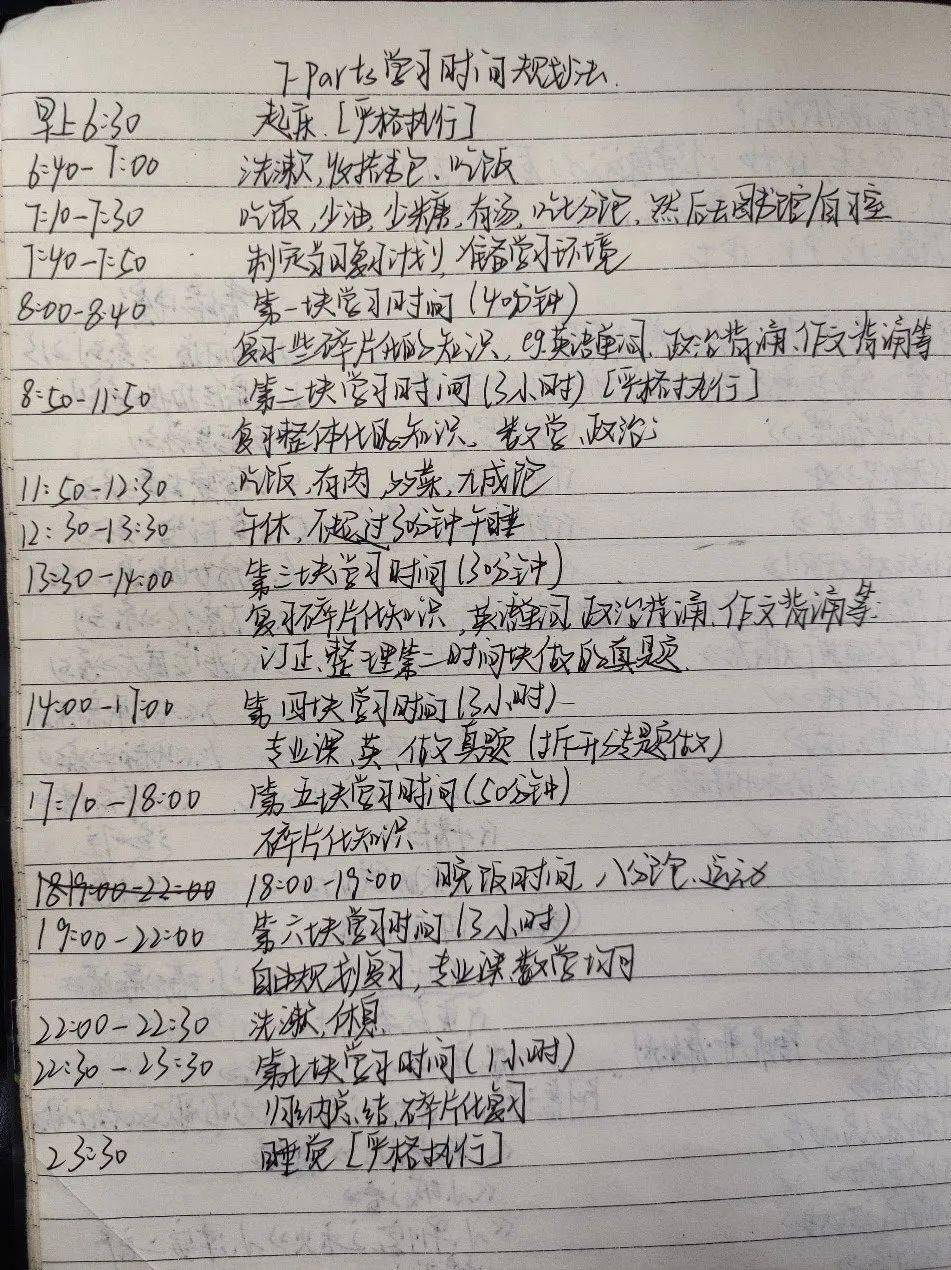 7-Parts学习时间规划法.
早上6:30 起床.[严格执行]
6:40-7:00 洗漱,收拾书包、吃饭
7:10-7:30 吃饭,少油,少糖,有汤,吃七分饱,然后去图书馆/自习室
7:40-7:50 制定当日复习计划,准备学习环境
8:00-8:40 第一块学习时间(40分钟)
复习一些碎片化的知识,eg.英语单词、政治背诵、作文背诵等
8:50-11:50 第二块学习时间(3小时)[严格执行]
复习整体化的知识、数学、政治
11:50-12:30 吃饭,有肉,多菜,九成饱
12:30-13:30 午休,不超过30分钟午睡
13:30-14:00 第三块学习时间(30分钟)
复习碎片化知识,英语单词、政治背诵、作文背诵等.
订正、整理第二时间块做的真题.
14:00-17:00 第四块学习时间(3小时)
专业课、英,做真题(拆开分专题做)
17:10-18:00 第五块学习时间(50分钟)
碎片化知识
18:19:00-22:00 18:00-19:00 晚饭时间,八分饱、运动
19:00-22:00 第六块学习时间(3小时)
自由规划复习,专业课、数学均可
22:00-22:30 洗漱,休息
22:30-23:30 第七块学习时间(1小时)
归纳总结,碎片化复习
23:30 睡觉[严格执行]